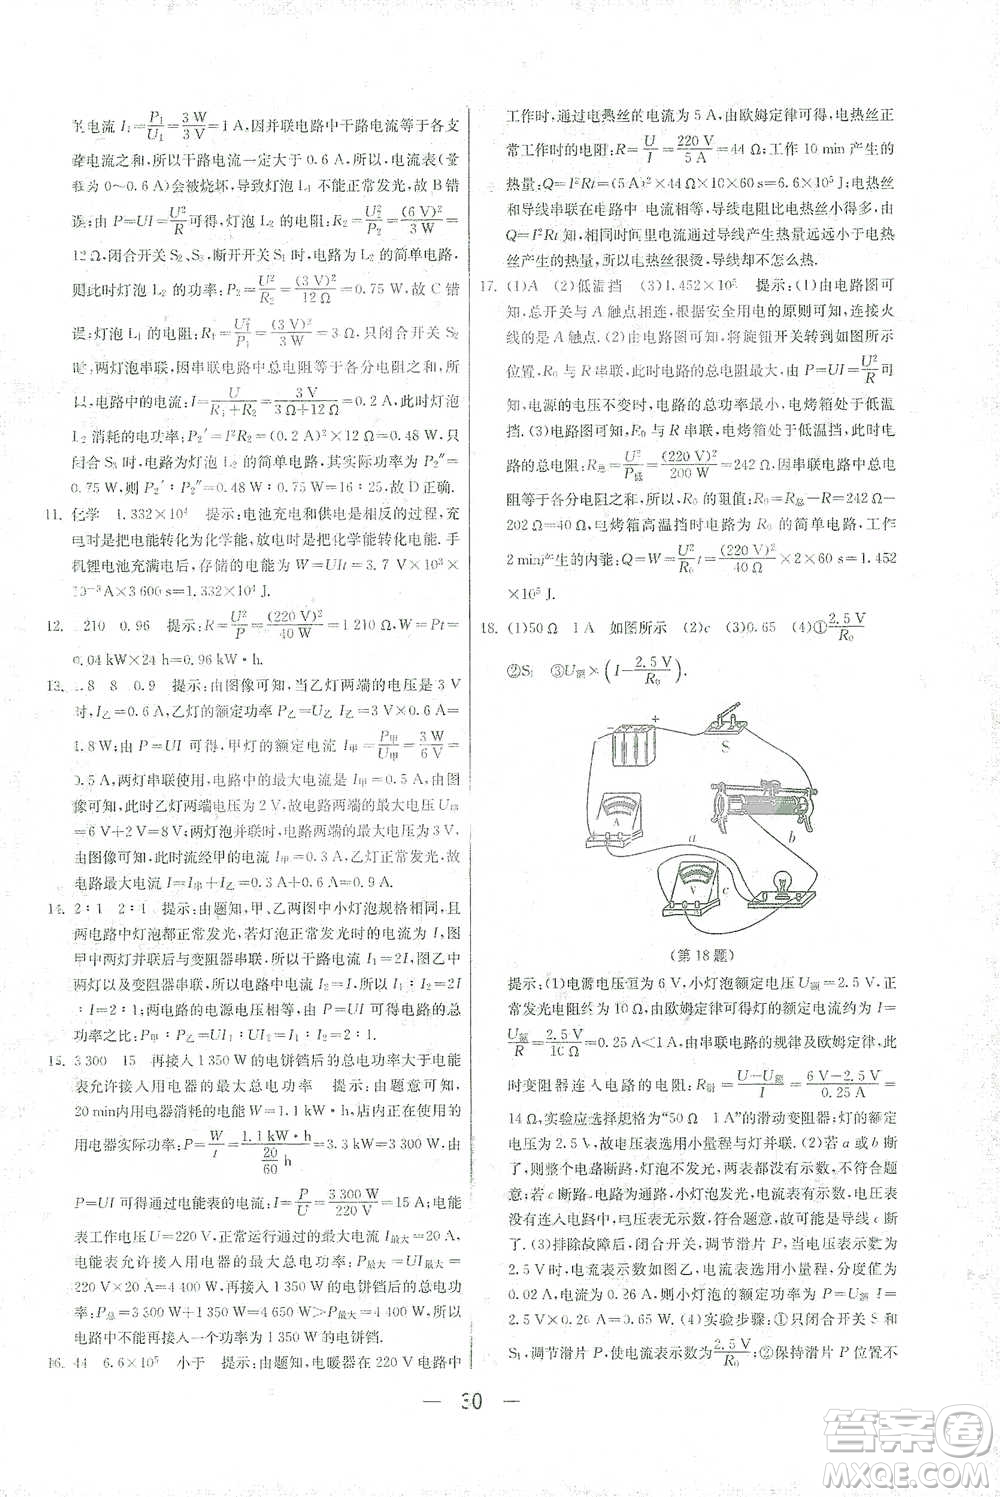 的电流 I₁=P₁/U₁=3 W/3 V=1 A,因并联电路中干路电流等于各支
路电流之和,所以干路电流一定大于 0.6 A,所以,电流表(量
程为 0~0.6 A)会被烧坏,导致灯泡 L₁ 不能正常发光,故 B 错
误;由 P=UI=U²/R可得,灯泡 L₂ 的电阻:R₂=U₂²/P₂=(6 V)²/3 W=
12 Ω,闭合开关 S₂、S₃,断开开关 S₁时,电路为灯泡 L₂ 的简单
电路,此时灯泡 L₂ 的功率:P₂=U²/R₂=(3 V)²/12 Ω=0.75 W,故 C 错
误;灯泡 L₁ 的电阻:R₁=U₁²/P₁=(3 V)²/3 W=3 Ω,只闭合开关 S₂
时,两灯泡串联,因串联电路中总电阻等于各分电阻之和,所
以,电路中的电流:I=U/(R₁+R₂)=3 V/(3 Ω+12 Ω)=0.2 A,此时灯泡
L₂ 消耗的电功率:P₂′=I²R₂=(0.2 A)²×12 Ω=0.48 W,只闭合
S₃ 时,电路为灯泡 L₂ 的简单电路,其实际功率 P₂″=P₂=
0.75 W,则 P₂′∶P₂″=0.48 W∶0.75 W=16∶25,故 D 正确.
11. 化学 1.332×10⁴ 提示:电池充电和供电是相反的过程,充
电时是把电能转化为化学能,供电时是把化学能转化为电能.手
机锂电池充满电后,存储的电能为 W=UIt=3.7 V×1 000×
10⁻³ A×3 600 s=1.332×10⁴ J.
12. 1 210 0.96 提示:R=U²/P=(220 V)²/40 W=1 210 Ω,W=Pt=
0.04 kW×24 h=0.96 kW·h.
13. 1.8 8 0.9 提示:由图像可知,当乙灯两端的电压是 3 V
时,I乙=0.6 A,乙灯的额定功率 P乙=U乙 I乙=3 V×0.6 A=
1.8 W;由 P=UI 可得,甲灯的额定电流 I甲=P甲/U甲=3 W/6 V=
0.5 A,两灯串联使用,电路中的最大电流是 I甲=0.5 A,由图
像可知,此时乙灯两端电压为 2 V,故电路两端的最大电压 U总
=6 V+2 V=8 V;两灯泡并联时,电路两端的最大电压为 3 V,
由图像可知,此时流经甲的电流 I甲=0.3 A,乙灯正常发光,故
电路最大电流 I=I甲+I乙=0.3 A+0.6 A=0.9 A.
14. 2∶1 2∶1 提示:由题知,甲、乙两图中小灯泡规格相同,且
两电路中灯泡都正常发光,若灯泡正常发光时的电流为 I,图
甲中两灯并联后与变阻器串联,所以干路电流 I₁=2I,图乙中
两灯以及变阻器串联,所以电路中电流 I₂=I,则 I₁∶I₂=2I
∶I=2∶1;两电路的电源电压相等,由 P=UI 可得,两电路的
功率之比:P甲∶P乙=UI₁∶UI₂=I₁∶I₂=2∶1.
15. 3 300 15 再接入 1 350 W 的电饼铛后的总电功率大于电能
表允许接入用电器的最大总电功率 提示:由题意可知,
20 min内用电器消耗的电能 W=1.1 kW·h,店内正在使用的
用电器实际功率:P=W/t=1.1 kW·h/(20/60 h)=3.3 kW=3 300 W,由
P=UI 可得通过电能表的电流:I=P/U=3 300 W/220 V=15 A;电能
表工作电压 U=220 V,正常运行通过的最大电流 I最大=20 A,
电能表允许接入用电器的最大总功率:P最大=UI最大=
220 V×20 A=4 400 W,再接入 1 350 W 的电饼铛后的总电功
率:P总=3 300 W+1 350 W=4 650 W>P最大=4 400 W,所以
电路中不能再接入一个功率为 1 350 W 的电饼铛.
16. 44 6.6×10⁵ 小于 提示:由题知,电暖器在 220 V 电路中
工作时,通过电热丝的电流为 5 A,由欧姆定律可得,电热丝正
常工作时的电阻:R=U/I=220 V/5 A=44 Ω;工作 10 min 产生的
热量:Q=I²Rt=(5 A)²×44 Ω×10×60 s=6.6×10⁵ J;电热丝
和导线串联在电路中,电流相等,导线电阻比电热丝小得多,由
Q=I²Rt 知,相同时间里电流通过导线产生热量远远小于电热丝
产生的热量,所以电热丝很烫,导线却不怎么热.
17. (1)A (2)低温挡 (3)1.452×10⁵ 提示:(1)由电路图可
知,总开关与 A 触点相连,根据安全用电的原则可知,应连接火
线的是 A 触点.(2)由电路图可知,将旋钮开关转到如图所示
位置,R 与 R₀ 串联,此时电路的总电阻最大,由 P=UI=U²/R可
知,电源的电压不变时,电路的总功率最小,电烤箱处于低温
挡.(3)电路图可知,R₀ 与 R 串联,电烤箱处于低温挡,此时电
路的总电阻:R总=U²/P低=(220 V)²/200 W=242 Ω,因串联电路中总电
阻等于各分电阻之和,所以,R₀ 的阻值:R₀=R总-R=242 Ω-
202 Ω=40 Ω,电烤箱高温挡时电路为 R₀ 的简单电路,工作
2 min产生的内能:Q=W=U²/R₀ t=(220 V)²/40 Ω×2×60 s=1.452
×10⁵ J.
18. (1)50 Ω 1 A 如图所示 (2)c (3)0.65 (4)①2.5 V/R₀
②S₁ ③U额×(I-2.5 V/R₀).
- +
S
A
a b
V c
(第 18 题)
提示:(1)电源电压恒为 6 V,小灯泡额定电压 U额=2.5 V,正
常发光电阻约为 10 Ω,由欧姆定律可得灯的额定电流约为 I=
U额/R=2.5 V/10 Ω=0.25 A<1 A,由串联电路的规律及欧姆定律,此
时变阻器连入电路的电阻:R滑=(U-U额)/I=(6 V-2.5 V)/0.25 A=
14 Ω,实验应选择规格为“50 Ω 1 A”的滑动变阻器;灯的额定
电压为 2.5 V,故电压表选用小量程与灯并联.(2)若 a 或 b 断
了,则整个电路断路,灯泡不发光,两表都没有示数,不符合题
意;若 c 断路,电路为通路,小灯泡发光,电流表有示数,电压表
没有连入电路中,电压表无示数,符合题意,可能是导线 c 断
了.(3)排除故障后,闭合开关,调节滑片 P,当电压表示数为
2.5 V 时,电流表示数如图乙,电流表选用小量程,分度值为
0.02 A,电流为 0.26 A,则小灯泡的额定功率为 P=U额 I额=
2.5 V×0.26 A=0.65 W.(4)实验步骤:①只闭合开关 S 和
S₁,调节滑片 P,使电流表示数为2.5 V/R₀;②保持滑片 P 位置不
— 30 —
答案圈
MXQE.COM